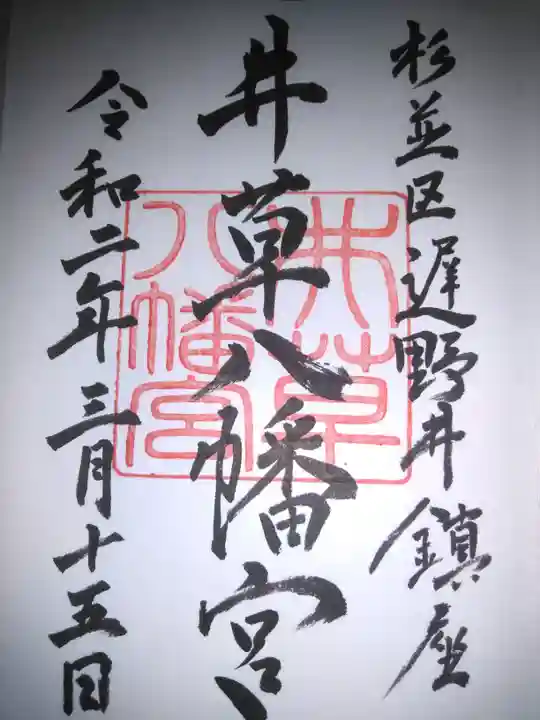 杉並区遅野井鎮座
井草八幡宮
井草八幡宮
令和二年三月十五日